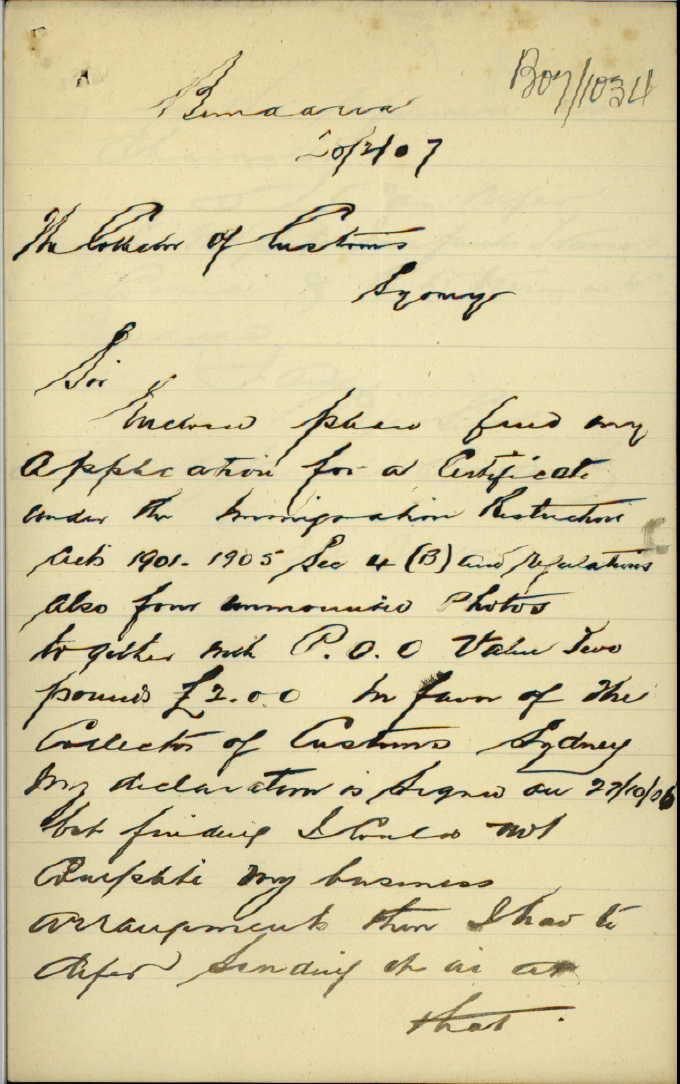 B07/1034
Bumaarra
20/2/07
The Collector of Customs
Sydney
Sir
Enclosed please find my
Application for a Certificate
under the Immigration Restriction
Acts 1901-1905 Sec 4 (B) and Regulations
also four unmounted Photos
together with P.O.O Value Two
pounds £2.0.0 In favor of the
Collector of Customs Sydney
My declaration is signed on 27/10/06
but finding I could not
Complete my business
arrangements then I had to
defer sending it in at
that